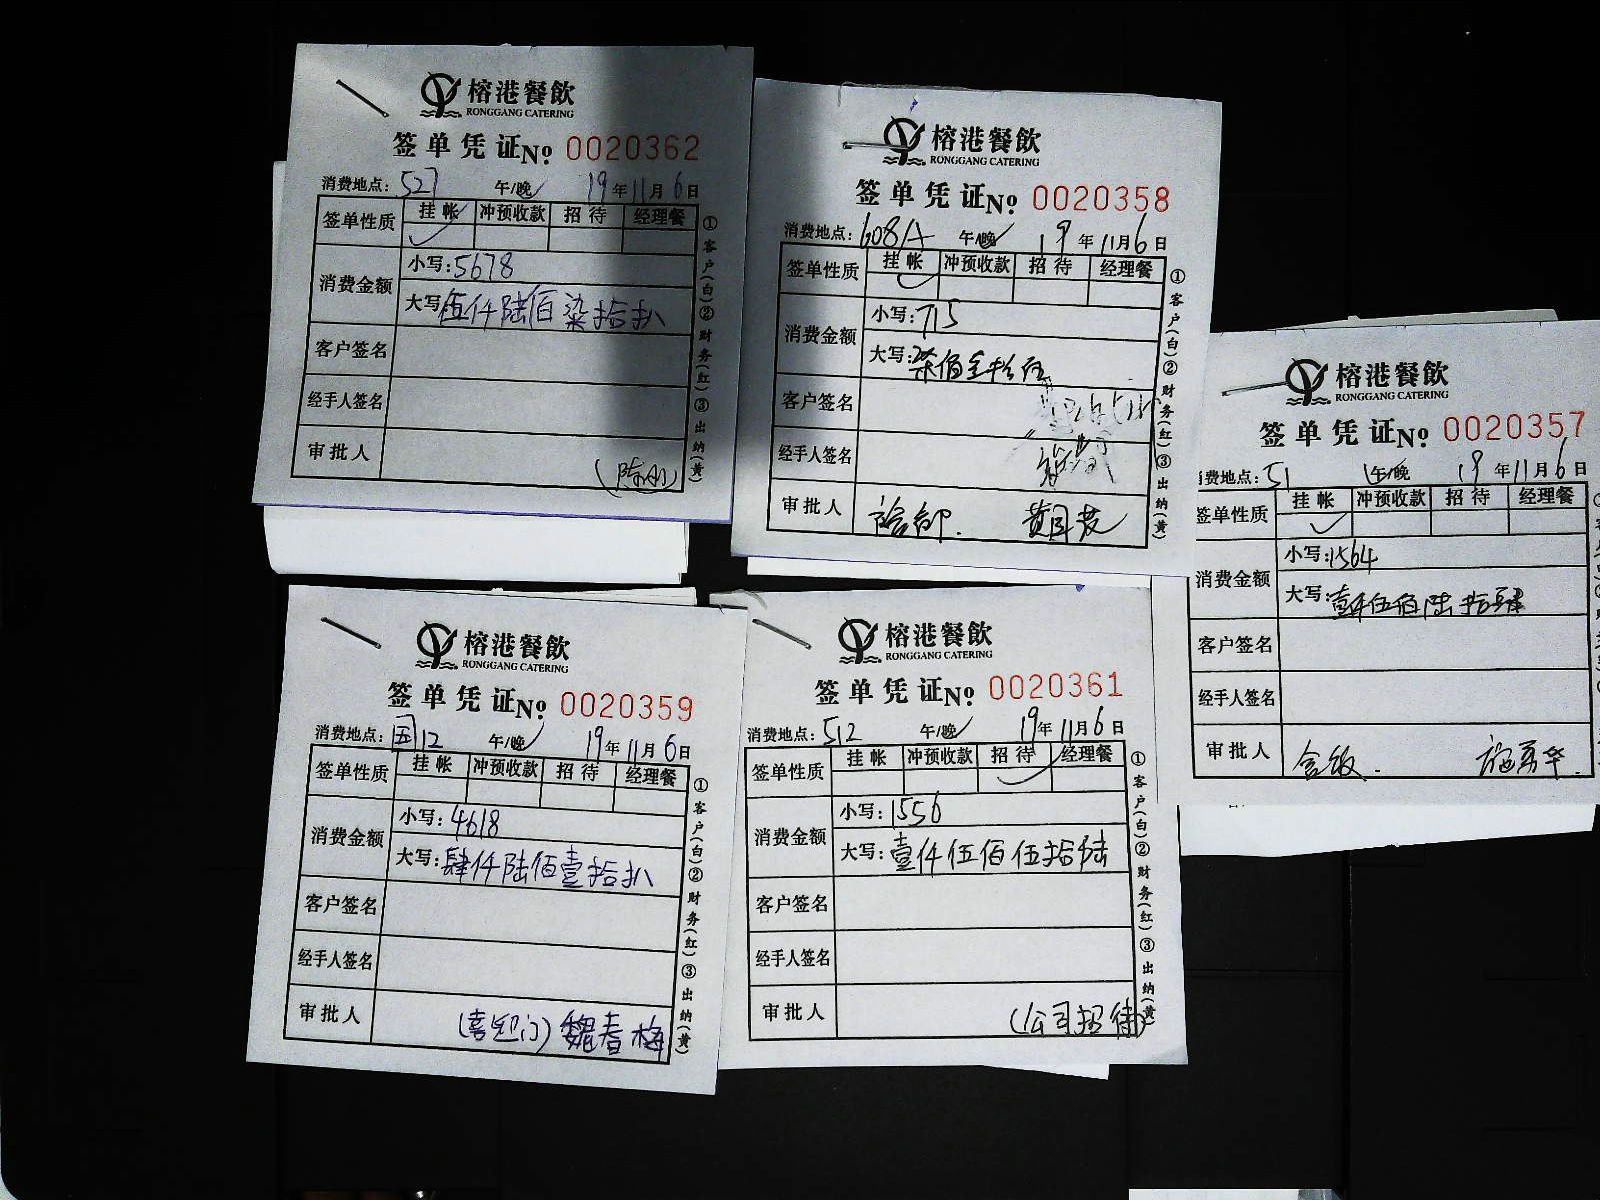 榕港餐飲
RONGGANG CATERING
签单凭证No. 0020362
消费地点: 527 午/晚 19年11月6日
签单性质 挂帐 冲预收款 招待 经理餐
消费金额 小写: 5678
大写: 伍仟陆佰柒拾扒
客户签名
经手人签名
审批人
①客户(白)②财务(红)③出纳(黄)
榕港餐飲
RONGGANG CATERING
签单凭证No. 0020358
消费地点: 608A 午/晚 19年11月6日
签单性质 挂帐 冲预收款 招待 经理餐
消费金额 小写: 715
大写: 柒佰壹拾伍
客户签名
经手人签名
审批人
①客户(白)②财务(红)③出纳(黄)
榕港餐飲
RONGGANG CATERING
签单凭证No. 0020357
消费地点: 51 午/晚 19年11月6日
签单性质 挂帐 冲预收款 招待 经理餐
消费金额 小写: 1564
大写: 壹仟伍佰陆拾肆
客户签名
经手人签名
审批人 施勇华
榕港餐飲
RONGGANG CATERING
签单凭证No. 0020359
消费地点: 国12 午/晚 19年11月6日
签单性质 挂帐 冲预收款 招待 经理餐
消费金额 小写: 4618
大写: 肆仟陆佰壹拾扒
客户签名
经手人签名
审批人 (喜迎门) 魏春梅
①客户(白)②财务(红)③出纳(黄)
榕港餐飲
RONGGANG CATERING
签单凭证No. 0020361
消费地点: 512 午/晚 19年11月6日
签单性质 挂帐 冲预收款 招待 经理餐
消费金额 小写: 1556
大写: 壹仟伍佰伍拾陆
客户签名
经手人签名
审批人 (公司招待)
①客户(白)②财务(红)③出纳(黄)